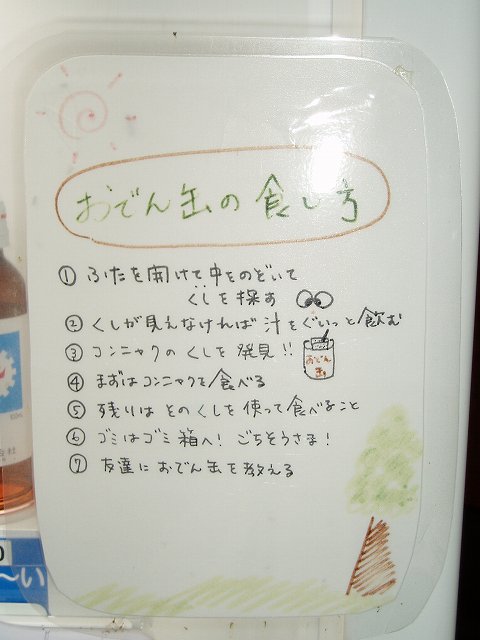 おでん缶の食し方
① ふたを開けて中をのぞいて
くしを探す
② くしが見えなければ汁をぐいっと飲む
③ コンニャクのくしを発見!!
おでん
缶
④ まずはコンニャクを食べる
⑤ 残りはそのくしを使って食べること
⑥ ゴミはゴミ箱へ! ごちそうさま!
⑦ 友達におでん缶を教える
〜い